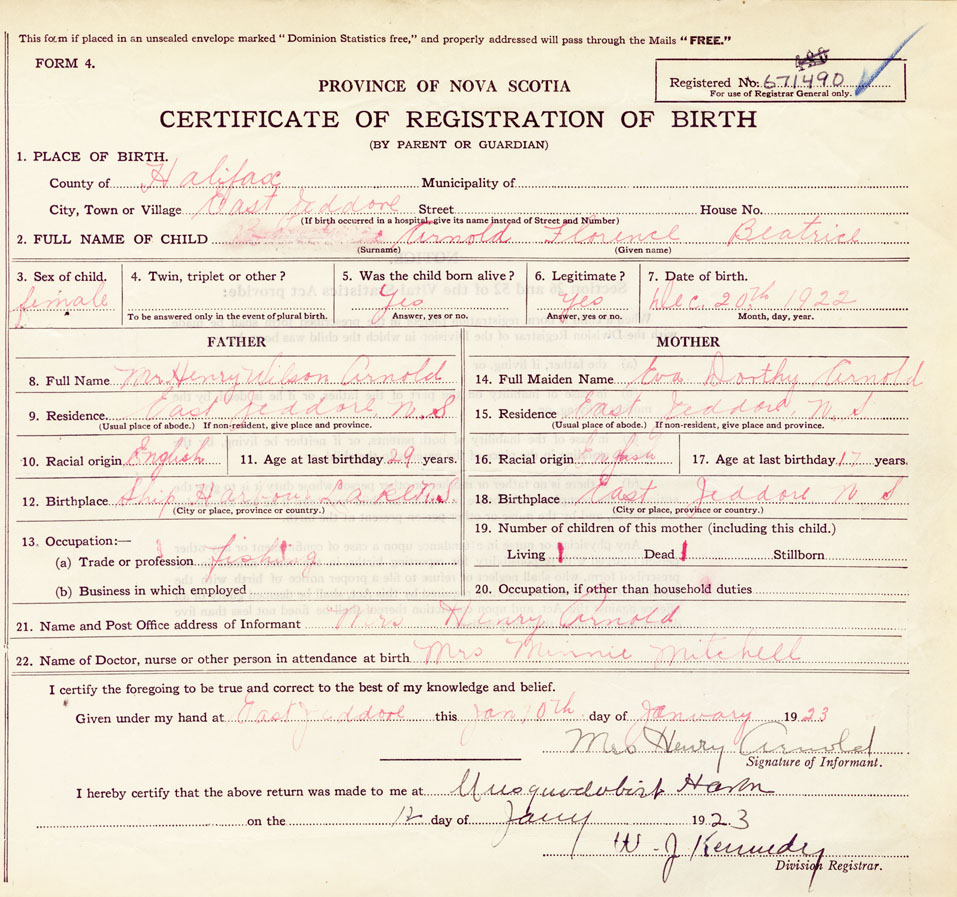 This form if placed in an unsealed envelope marked "Dominion Statistics free," and properly addressed will pass through the Mails "FREE."
FORM 4.
PROVINCE OF NOVA SCOTIA
Registered No: 671490
For use of Registrar General only.
CERTIFICATE OF REGISTRATION OF BIRTH
(BY PARENT OR GUARDIAN)
1. PLACE OF BIRTH.
County of Halifax Municipality of
City, Town or Village East Jeddore Street House No.
(If birth occurred in a hospital, give its name instead of Street and Number)
2. FULL NAME OF CHILD Arnold Florence Beatrice
(Surname) (Given name)
3. Sex of child. 4. Twin, triplet or other? 5. Was the child born alive? 6. Legitimate? 7. Date of birth.
female Yes Yes Dec. 20th 1922
To be answered only in the event of plural birth. Answer, yes or no. Answer, yes or no. Month, day, year.
FATHER MOTHER
8. Full Name Mr. Henry Wilson Arnold 14. Full Maiden Name Eva Dorthy Arnold
9. Residence East Jeddore N. S 15. Residence East Jeddore, N. S
(Usual place of abode.) If non-resident, give place and province. (Usual place of abode.) If non-resident, give place and province.
10. Racial origin English 11. Age at last birthday 29 years. 16. Racial origin English 17. Age at last birthday 17 years.
12. Birthplace Ship Harbour Lake N.S. 18. Birthplace East Jeddore N S
(City or place, province or country.) (City or place, province or country.)
19. Number of children of this mother (including this child.)
13. Occupation:—
(a) Trade or profession fishing Living 1 Dead 1 Stillborn
(b) Business in which employed 20. Occupation, if other than household duties
21. Name and Post Office address of Informant Mrs Henry Arnold
22. Name of Doctor, nurse or other person in attendance at birth Mrs Minnie Mitchell
I certify the foregoing to be true and correct to the best of my knowledge and belief.
Given under my hand at East Jeddore this Jan, 10th day of January 1923
Mrs Henry Arnold
Signature of Informant.
I hereby certify that the above return was made to me at Musquodoboit Harbr
on the 12 day of Jany 1923
W. J Kennedy
Division Registrar.